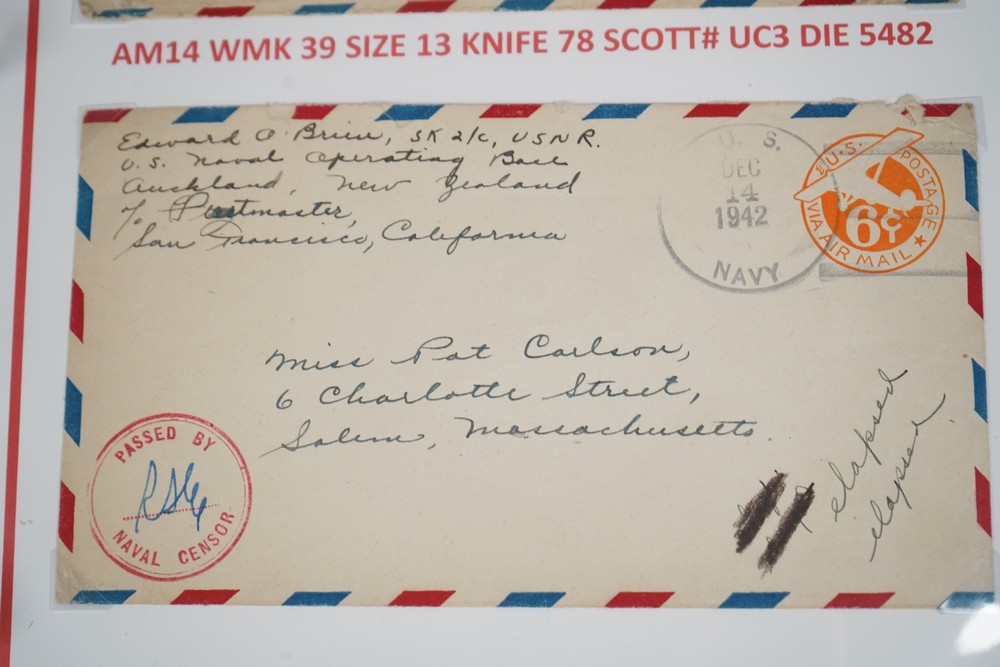 AM14 WMK 39 SIZE 13 KNIFE 78 SCOTT# UC3 DIE 5482
Edward O'Brien, SK 2/c, USNR.
U.S. Naval Operating Base
Auckland, New Zealand
℅ Postmaster,
San Francisco, California
U. S.
DEC
14
1942
NAVY
U.S. POSTAGE
6¢
VIA AIR MAIL
Miss Pat Carlson,
6 Charlotte Street,
Salem, Massachusetts.
PASSED BY
NAVAL CENSOR
elapsed
elapsed